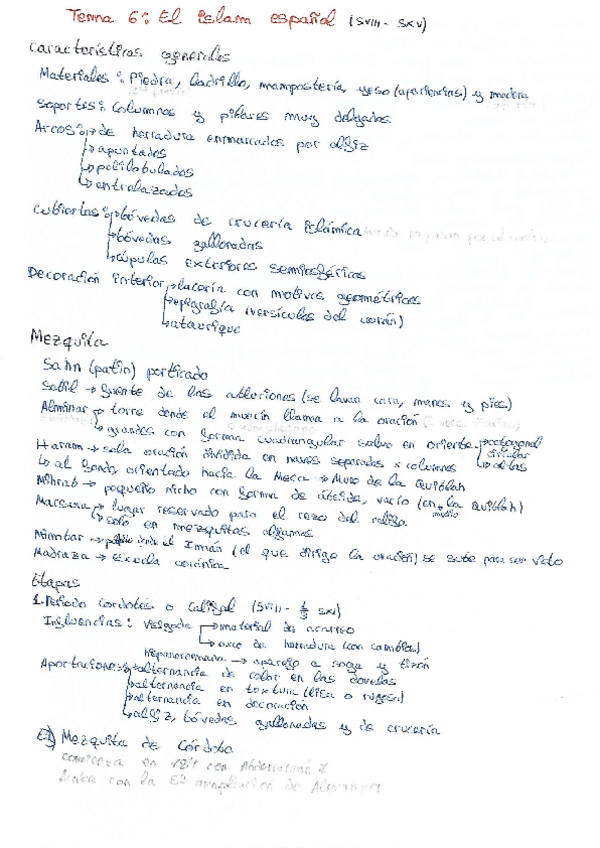 Tema 6: El islam español (SVIII - SXV)
Características generales
Materiales: Piedra, ladrillo, mampostería, yeso (apariencias) y madera
Soportes: Columnas y pilares muy delgados
Arcos: → de herradura enmarcados por alfiz
↳ apuntados
↳ polilobulados
↳ entrelazados
Cubiertas: → bóvedas de crucería islámica
↳ bóvedas gallonadas
↳ cúpulas exteriores semiesféricas
Decoración interior → lacería con motivos geométricos
↳ epigrafía (versículos del corán)
↳ ataurique
Mezquita
Sahn (patio) porticado
Sabil → fuente de las abluciones (se lavan cara, manos y pies)
Alminar → torre donde el muecín llama a la oración
↳ grandes con forma cuadrangular salvo en oriente → octogonal
circular
↳ altas
Haram → sala oración dividida en naves separadas x columnas
↳ al fondo, orientado hacia la Meca → Muro de la Quiblah
Mihrab → pequeño nicho con forma de ábside, vacío (en la Quiblah)
medio
Macsura → lugar reservado para el rezo del califa
↳ solo en mezquitas algunas
Mimbar → donde el Imán (el que dirige la oración) se sube para ser visto
Madraza → Escuela coránica
Etapas
1. Periodo cordobés o califal (SVIII - 1/3 SXI)
Influencias: Visigoda → material de acarreo
↳ arco de herradura (con cambios)
hispanorromana → aparejo a soga y tizón
Aportaciones: → alternancia de color en las dovelas
↳ alternancia en textura (lisa o rugosa)
↳ alternancia en decoración
↳ alfiz, bóvedas gallonadas y de crucería
Ej) Mezquita de Córdoba
comienza en 784 con Abderramán I
Acaba con la ampliación de Almanzor